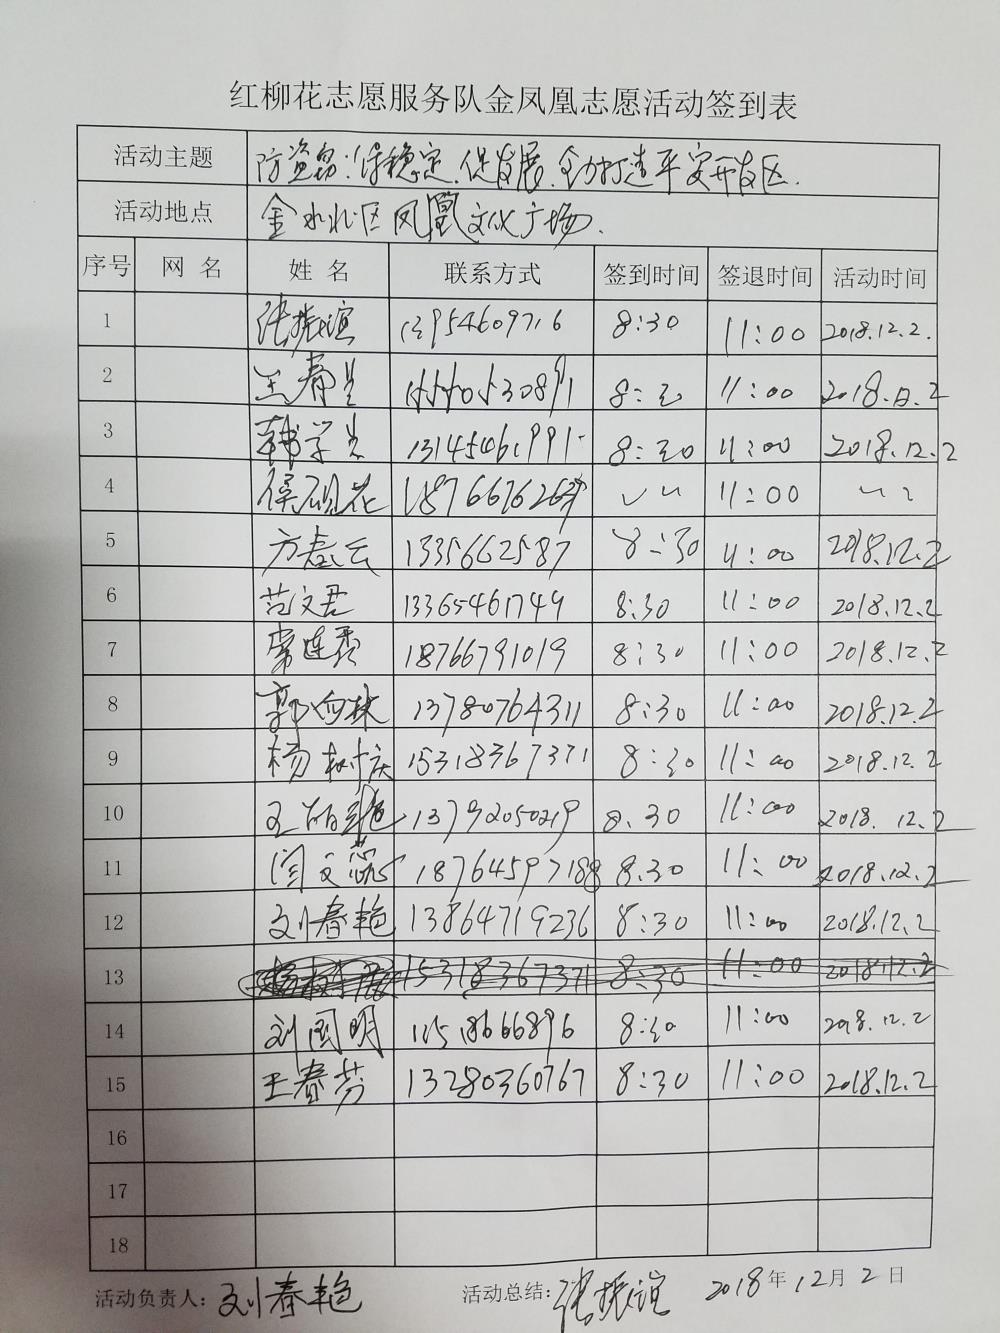 红柳花志愿服务队金凤凰志愿活动签到表
活动主题 防盗易:保稳定.促发展.全力打造平安开发区.
活动地点 金水北区凤凰文化广场.
序号 网 名 姓 名 联系方式 签到时间 签退时间 活动时间
1 张振谊 13954609716 8:30 11:00 2018.12.2.
2 王春 8:30 11:00 2018.12.2
3 韩学 8:30 11:00 2018.12.2
4 花 11:00
5 方春云 1335662587 8:30 11:00 2018.12.2
6 范文君 13365461749 8:30 11:00 2018.12.2
7 常连秀 18766791019 8:30 11:00 2018.12.2
8 郭向林 13780764311 8:30 11:00 2018.12.2
9 杨树庆 15318367371 8:30 11:00 2018.12.2
10 王 艳 13792050219 8.30 11:00 2018.12.2
11 闫文蕊 18764597188 8.30 11:00 2018.12.2
12 刘春艳 13864719236 8:30 11:00 2018.12.2
13 15318367371 8:30 11:00 2018.12.2
14 刘国明 8:30 11:00 2018.12.2
15 王春芬 13280360767 8:30 11:00 2018.12.2
16
17
18
活动负责人: 刘春艳 活动总结: 张振谊 2018年12月2日